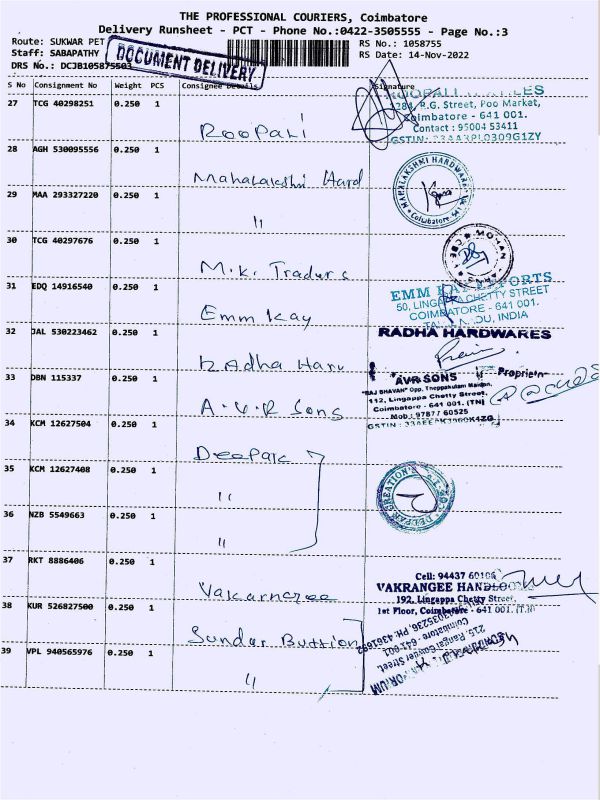 THE PROFESSIONAL COURIERS, Coimbatore
Delivery Runsheet - PCT - Phone No.:0422-3505555 - Page No.:3
Route: SUKWAR PET
RS No.: 1058755
Staff: SABAPATHY
RS Date: 14-Nov-2022
DRS No.: DCJB105875503
DOCUMENT DELIVERY
S No Consignment No Weight PCS Consignee Details Signature
27 TCG 40298251 0.250 1
Roopali
284, R.G. Street, Poo Market,
Coimbatore - 641 001.
Contact : 95004 53411
28 AGH 530095556 0.250 1
Mahalakshmi Hard
MAHALAKSHMI HARDWARE
Coimbatore
29 MAA 293327220 0.250 1
"
30 TCG 40297676 0.250 1
M.K. Traders
MOHAN
CBE-1
31 EDQ 14916540 0.250 1
Emm Kay
EMM KAY EXPORTS
50, LINGAPPA CHETTY STREET
COIMBATORE - 641 001.
TAMIL NADU, INDIA
32 JAL 530223462 0.250 1
Radha Har
RADHA HARDWARES
Proprietor
33 DBN 115337 0.250 1
A.V.R Sons
AVR SONS
"RAJ BHAVAN" Opp. Theppakulam Maidan,
112, Lingappa Chetty Street,
Coimbatore - 641 001. (TN)
Mob : 97877 60525
34 KCM 12627504 0.250 1
Deepak
35 KCM 12627408 0.250 1
"
DEEPAK CREATION'S
36 NZB 5549663 0.250 1
"
37 RKT 8886406 0.250 1
Vakarnagee
Cell: 94437 60106
VAKRANGEE HANDLOOMS
192, Lingappa Chetty Street,
1st Floor, Coimbatore - 641 001. (T.N)
38 KUR 526827500 0.250 1
Sundar Buttion
215, Rangai Gowder Street,
Coimbatore - 641 001
39 VPL 940565976 0.250 1
"